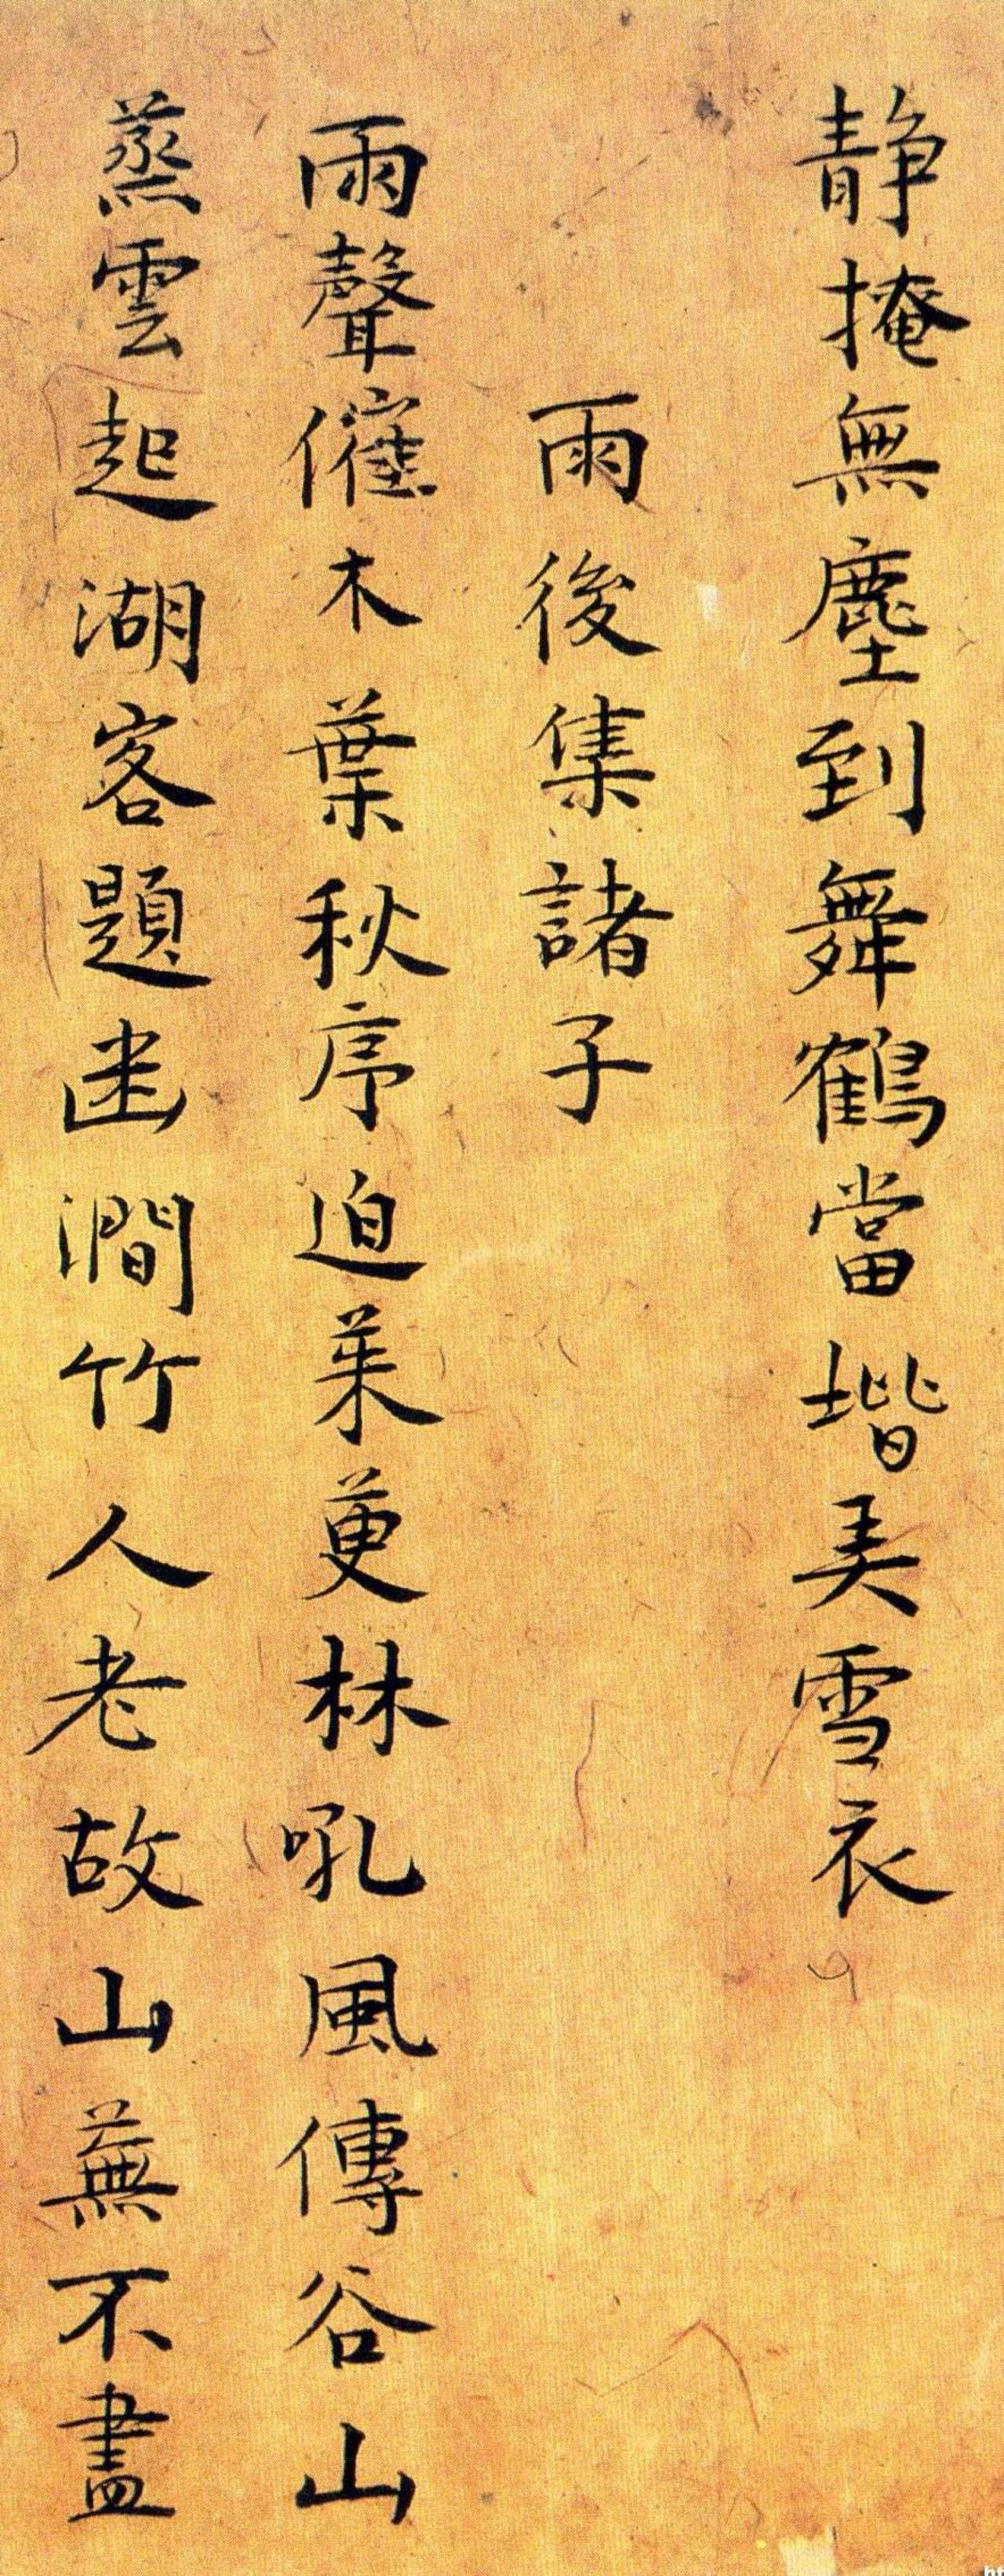 靜掩無塵到舞鶴當堦美雪衣
雨後集諸子
雨聲催木葉秋序迫茱萸林吼風傳谷山
蒸雲起湖客題迷澗竹人老故山蕪不盡